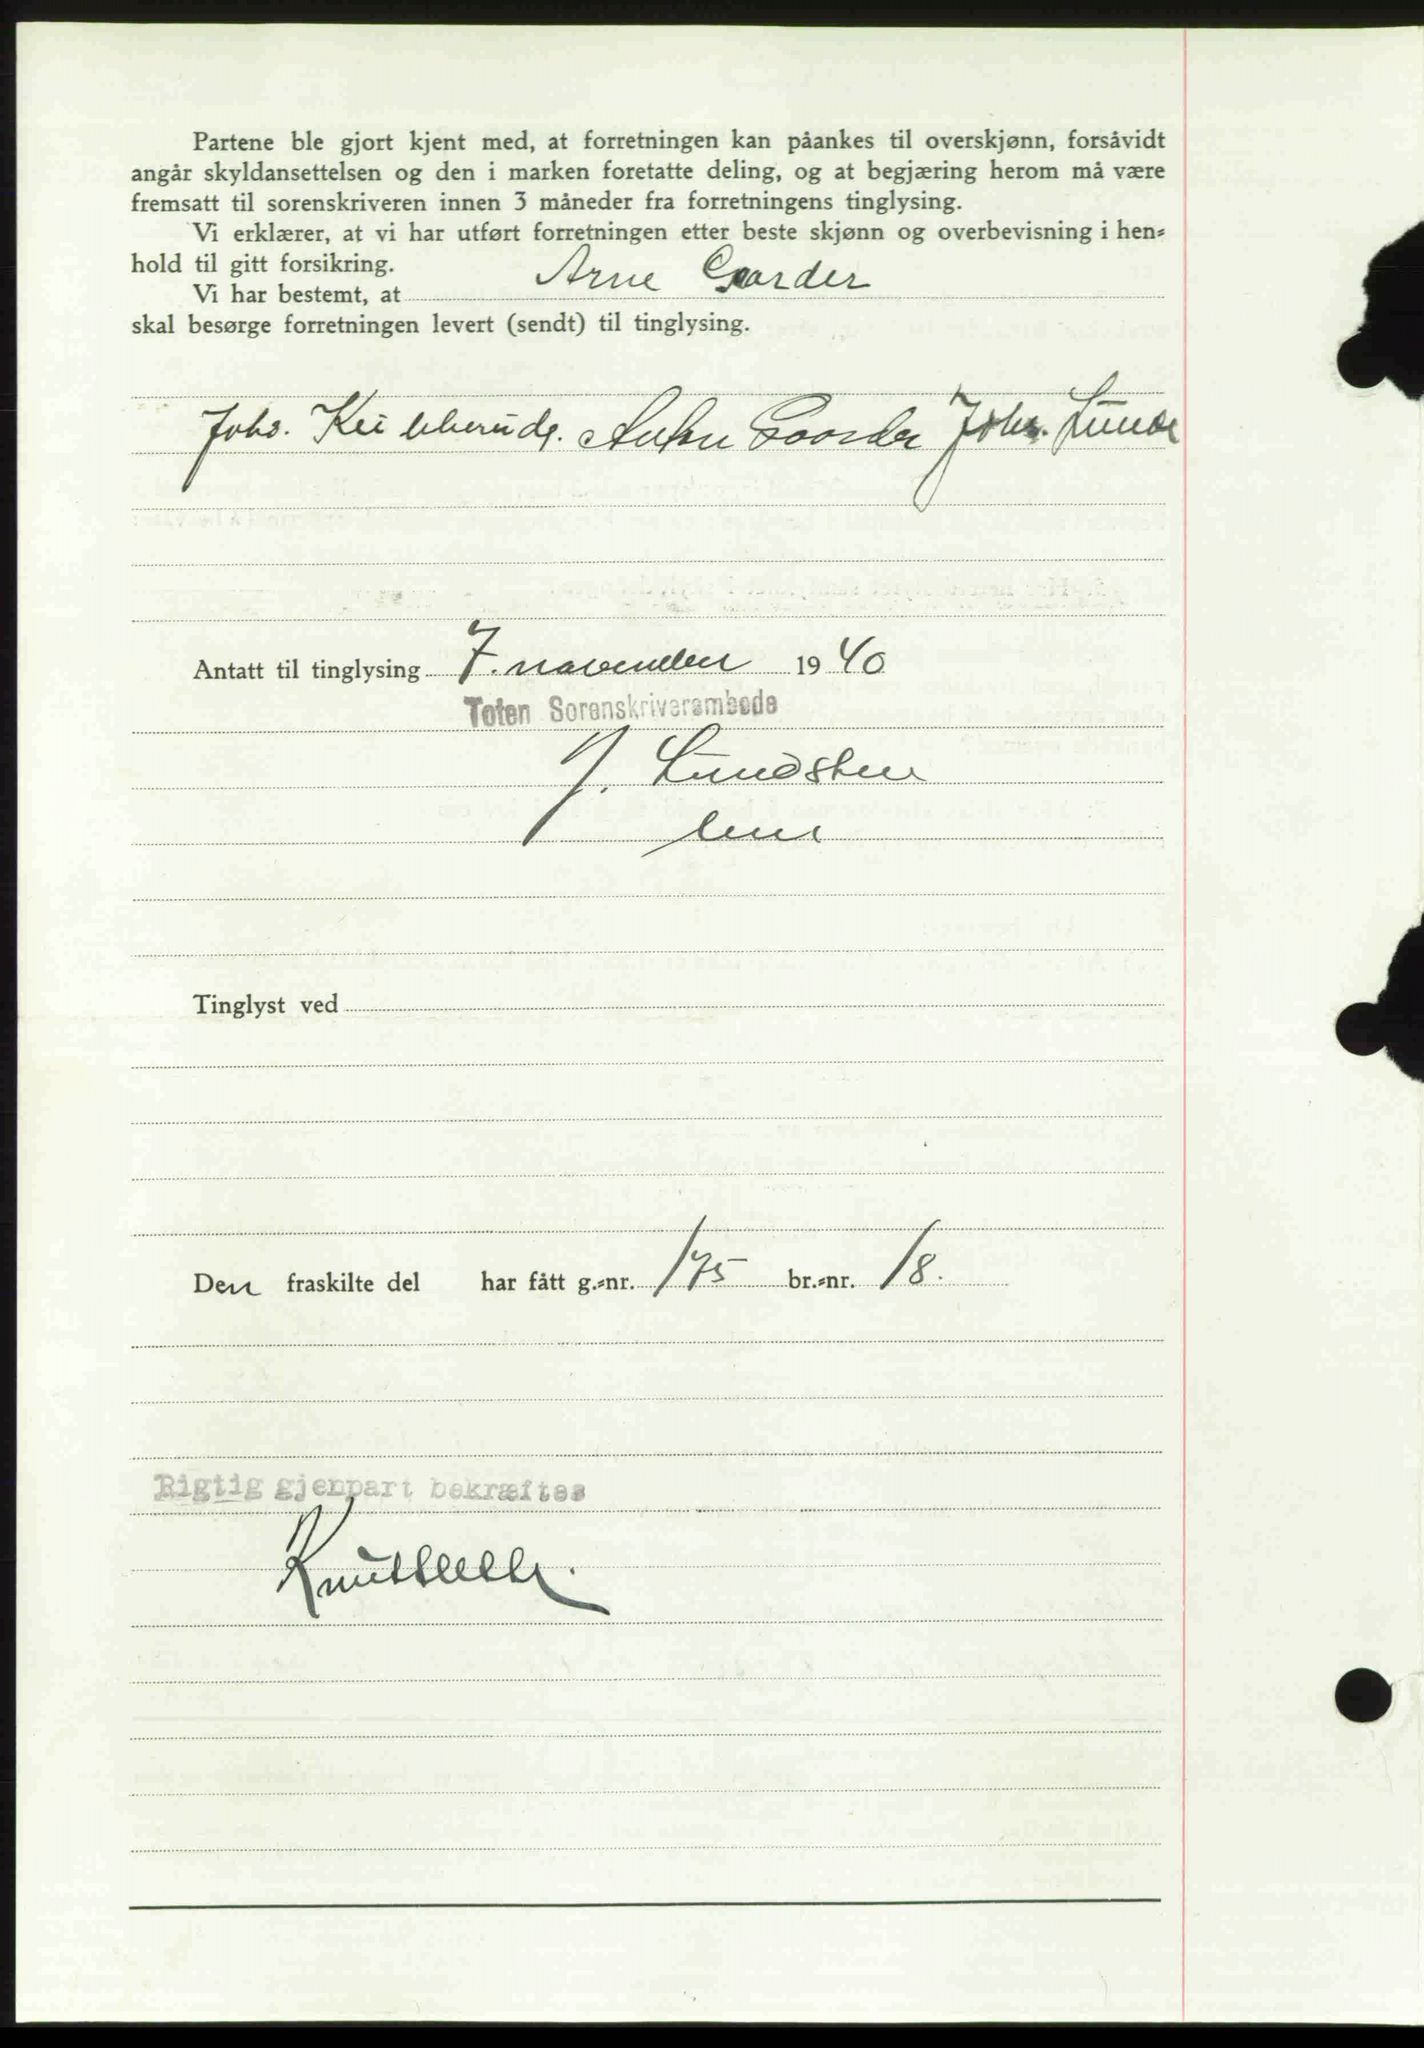 Partene ble gjort kjent med, at forretningen kan påankes til overskjønn, forsåvidt
angår skyldansettelsen og den i marken foretatte deling, og at begjæring herom må være
fremsatt til sorenskriveren innen 3 måneder fra forretningens tinglysing.
Vi erklærer, at vi har utført forretningen etter beste skjønn og overbevisning i hen-
hold til gitt forsikring.
Vi har bestemt, at Arne Gaarder
skal besørge forretningen levert (sendt) til tinglysing.
Johs. Kublerud. Anton Gaarder Johs. Lunde
Antatt til tinglysing 7. november 1940
Toten Sorenskriverembede
J. Lundsten
Tinglyst ved
Den fraskilte del har fått g.-nr. 175 br.-nr. 18.
Rigtig gjenpart bekræftes